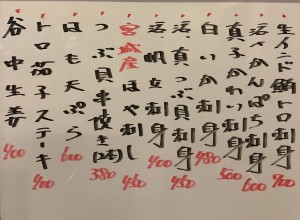 生インド鮪トロ刺身 700
活かんぱち刺身 600
真子かれい刺身 500
白いか刺身 480
活真つぶ刺身 450
活帆立刺身 400
宮城産ほや刺し 450
つぶ貝串焼き(2本) 380
はも天ぷら 600
トロ茄子ステーキ 400
谷中生姜 400